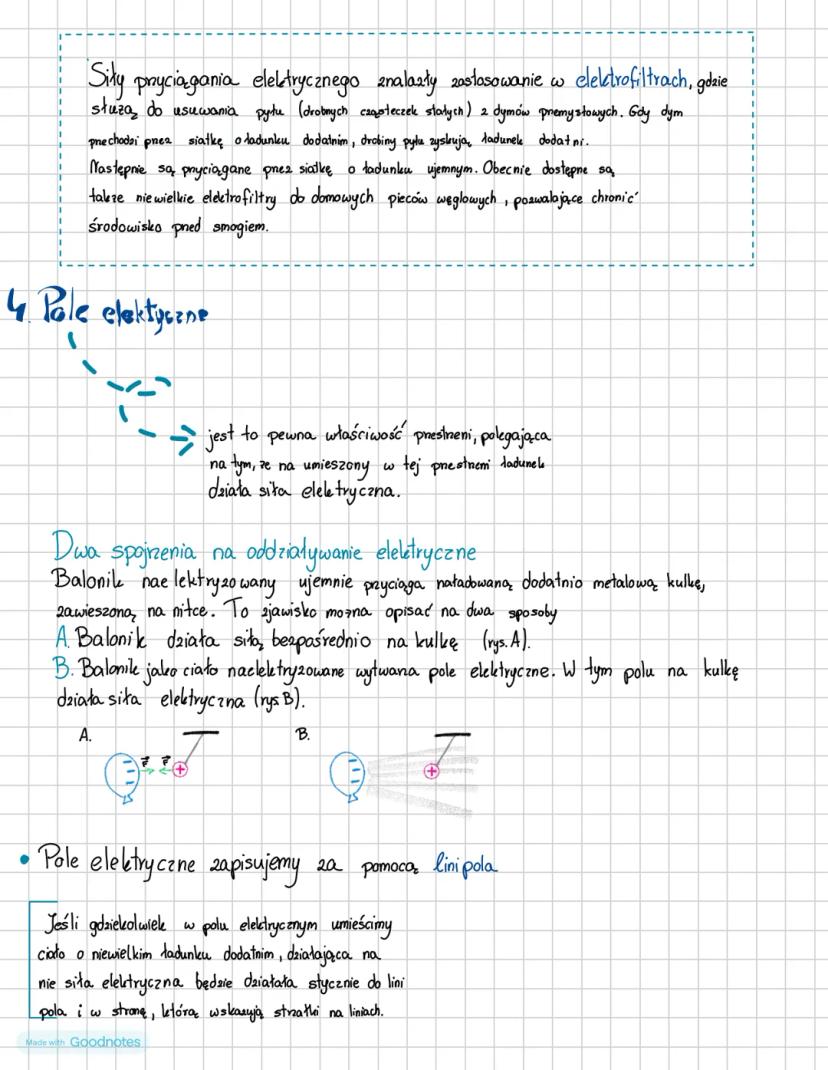 Siły przyciągania elektrycznego znalazły zastosowanie w elektrofiltrach, gdzie
służą do usuwania pyłu (drobnych cząsteczek stałych) z dymów przemysłowych. Gdy dym
przechodzi przez siatkę o ładunku dodatnim, drobiny pyłu zyskują ładunek dodatni.
Następnie są przyciągane przez siatkę o ładunku ujemnym. Obecnie dostępne są
także niewielkie elektrofiltry do domowych pieców węglowych, pozwalające chronić
środowisko przed smogiem.
4. Pole elektyczne
jest to pewna właściwość przestrzeni, polegająca
na tym, że na umieszony w tej przestrzeni ładunek
działa siła elektryczna.
Dwa spojrzenia na oddziaływanie elektryczne
Balonik naelektryzowany ujemnie przyciąga naładowaną dodatnio metalową kulkę,
zawieszoną na nitce. To zjawisko można opisać na dwa sposoby
A. Balonik działa siłą bezpośrednio na kulkę (rys. A).
B. Balonik jako ciało naelektryzowane wytwarza pole elektryczne. W tym polu na kulkę
działa siła elektryczna (rys B).
A. B.
F F
+ +
• Pole elektryczne zapisujemy za pomocą lini pola
Jeśli gdziekolwiek w polu elektrycznym umieścimy
ciało o niewielkim ładunku dodatnim, działająca na
nie siła elektryczna będzie działała stycznie do lini
pola i w stronę, którą wskazują strzałki na liniach.
Made with Goodnotes